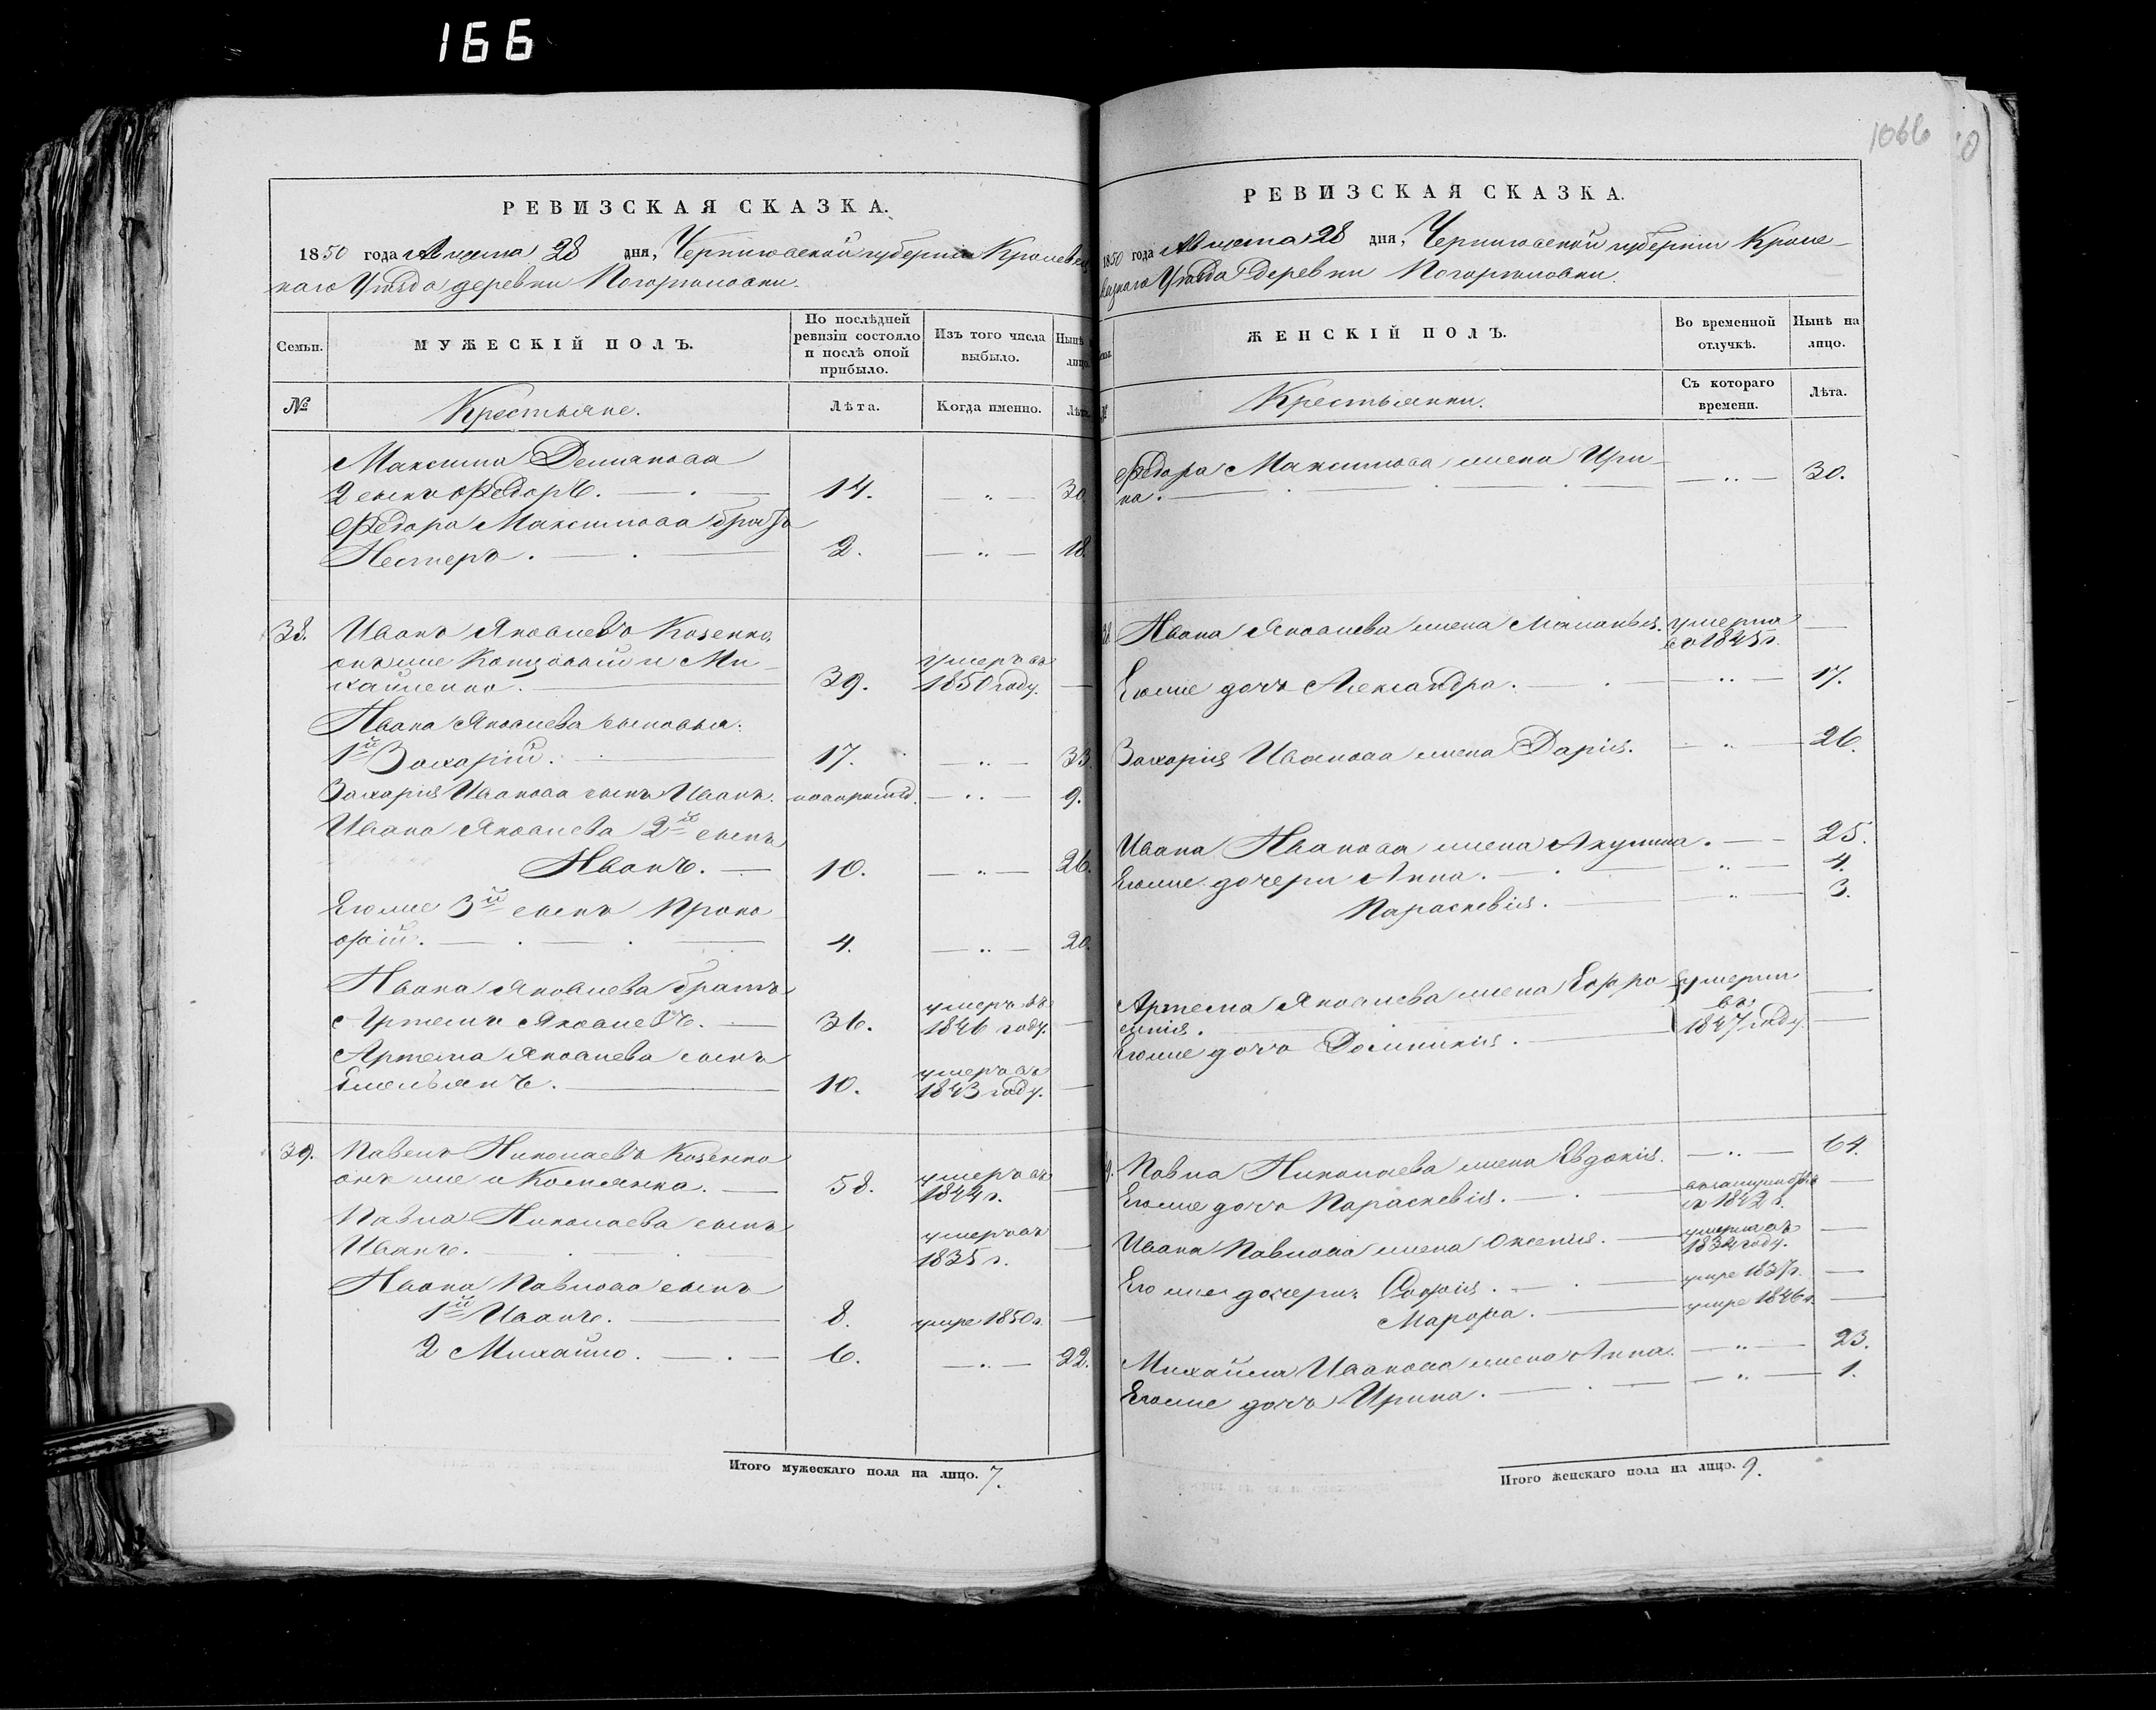 166
РЕВИЗСКАЯ СКАЗКА.
1850 года Августа 28 дня, Черниговской губернии Кролевец
каго Уѣзда деревни Погорѣловки.
Семьи.
МУЖЕСКІЙ ПОЛЪ.
По послѣдней
ревизіи состояло
и послѣ оной
прибыло.
Изъ того числа
выбыло.
Нынѣ
лицо.
№
Крестьяне.
Лѣта.
Когда именно.
Лѣта.
Максима Демянова
2 сынъ Ѳедоръ. 14. 30.
Ѳедора Максимова братъ
Нестеръ. 2. 18.
38. Иванъ Яковлевъ Козенко
онъ же и Ми
хайленко. 39. умеръ въ 1850 году.
Ивана Яковлева сыновья:
1й Захарій. 17. 33.
Захарія Иванова сынъ Иванъ. новорожд. 9.
Ивана Яковлева 2й сынъ
Иванъ. 10. 26.
Его же 3й сынъ Проко
фій. 4. 20.
Ивана Яковлева братъ
Артемъ Яковлевъ. 36. умеръ въ 1846 году.
Артема Яковлева сынъ
Емельянъ. 10. умеръ въ 1843 году.
39. Павелъ Николаевъ Козенко
онъ же и Костенко. 58. умеръ въ 1844 г.
Павла Николаева сынъ
Иванъ. умеръ въ 1835 г.
Ивана Павлова сынъ
1й Иванъ. 8. умре 1850 г.
2 Михайло. 6. 22.
Итого мужескаго пола на лицо. 7.
1066
РЕВИЗСКАЯ СКАЗКА.
1850 года Августа 28 дня, Черниговской губерніи Кроле-
вецкаго Уѣзда деревни Погорѣловки.
№
ЖЕНСКІЙ ПОЛЪ.
Во временной
отлучкѣ.
Нынѣ на
лицо.
Крестьянки.
Съ котораго
времени.
Лѣта.
Ѳедора Максимова жена Ири-
на. 30.
38. Ивана Яковлева жена Меланья. умерла въ 1845 г.
Его же дочь Александра. 17.
Захарія Иванова жена Дарія. 26.
Ивана Иванова жена Акулина. 25.
Его же дочери Анна. 4.
Параскевія. 3.
Артема Яковлева жена Евфро
синія. умерли въ 1847 году.
Его же дочь Домникія.
Павла Николаева жена Явдокія. 64.
Его же дочь Параскевія. въ замужествѣ съ 1842 г.
Ивана Павлова жена Оксенія. умерла въ году.
Его же дочери Софія. умре 1837 г.
Марфа. умре 1846 г.
Михайла Иванова жена Анна. 23.
Его же дочь Ирина. 1.
Итого женскаго пола на лицо. 9.